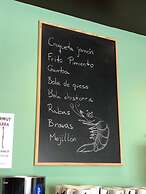 Croqueta jamón
Frito Pimiento
Gamba
Bola de queso
Bola chistorra
Rabas
Bravas
Mejillón